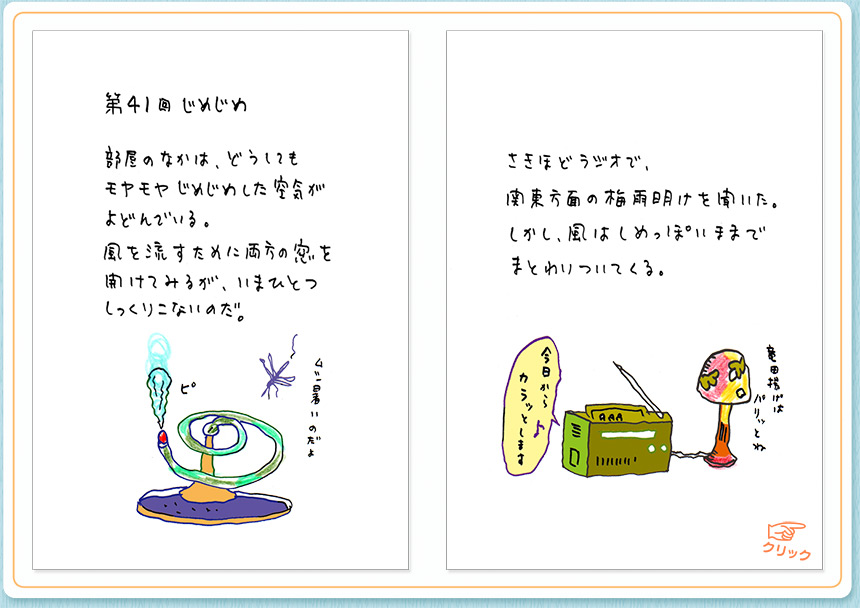 第41回 じめじめ
部屋のなかは、どうしても
モヤモヤじめじめした空気が
よどんでいる。
風を流すために両方の窓を
開けてみるが、いまひとつ
しっくりこないのだ。
ピ
ムシ暑いのだよ
さきほどラジオで、
関東方面の梅雨明けを聞いた。
しかし、風はしめっぽいままで
まとわりついてくる。
今日から
カラッとします♪
竜田揚げは
パリッとね
クリック